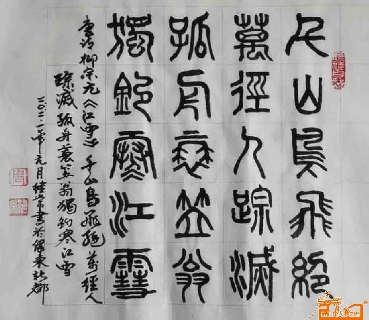 千山鳥飛絕
萬徑人踪滅
孤舟蓑笠翁
獨釣寒江雪
唐詩柳宗元《江雪》千山鳥飛絕萬徑人
踪滅孤舟蓑笠翁獨釣寒江雪
二〇二一年元月